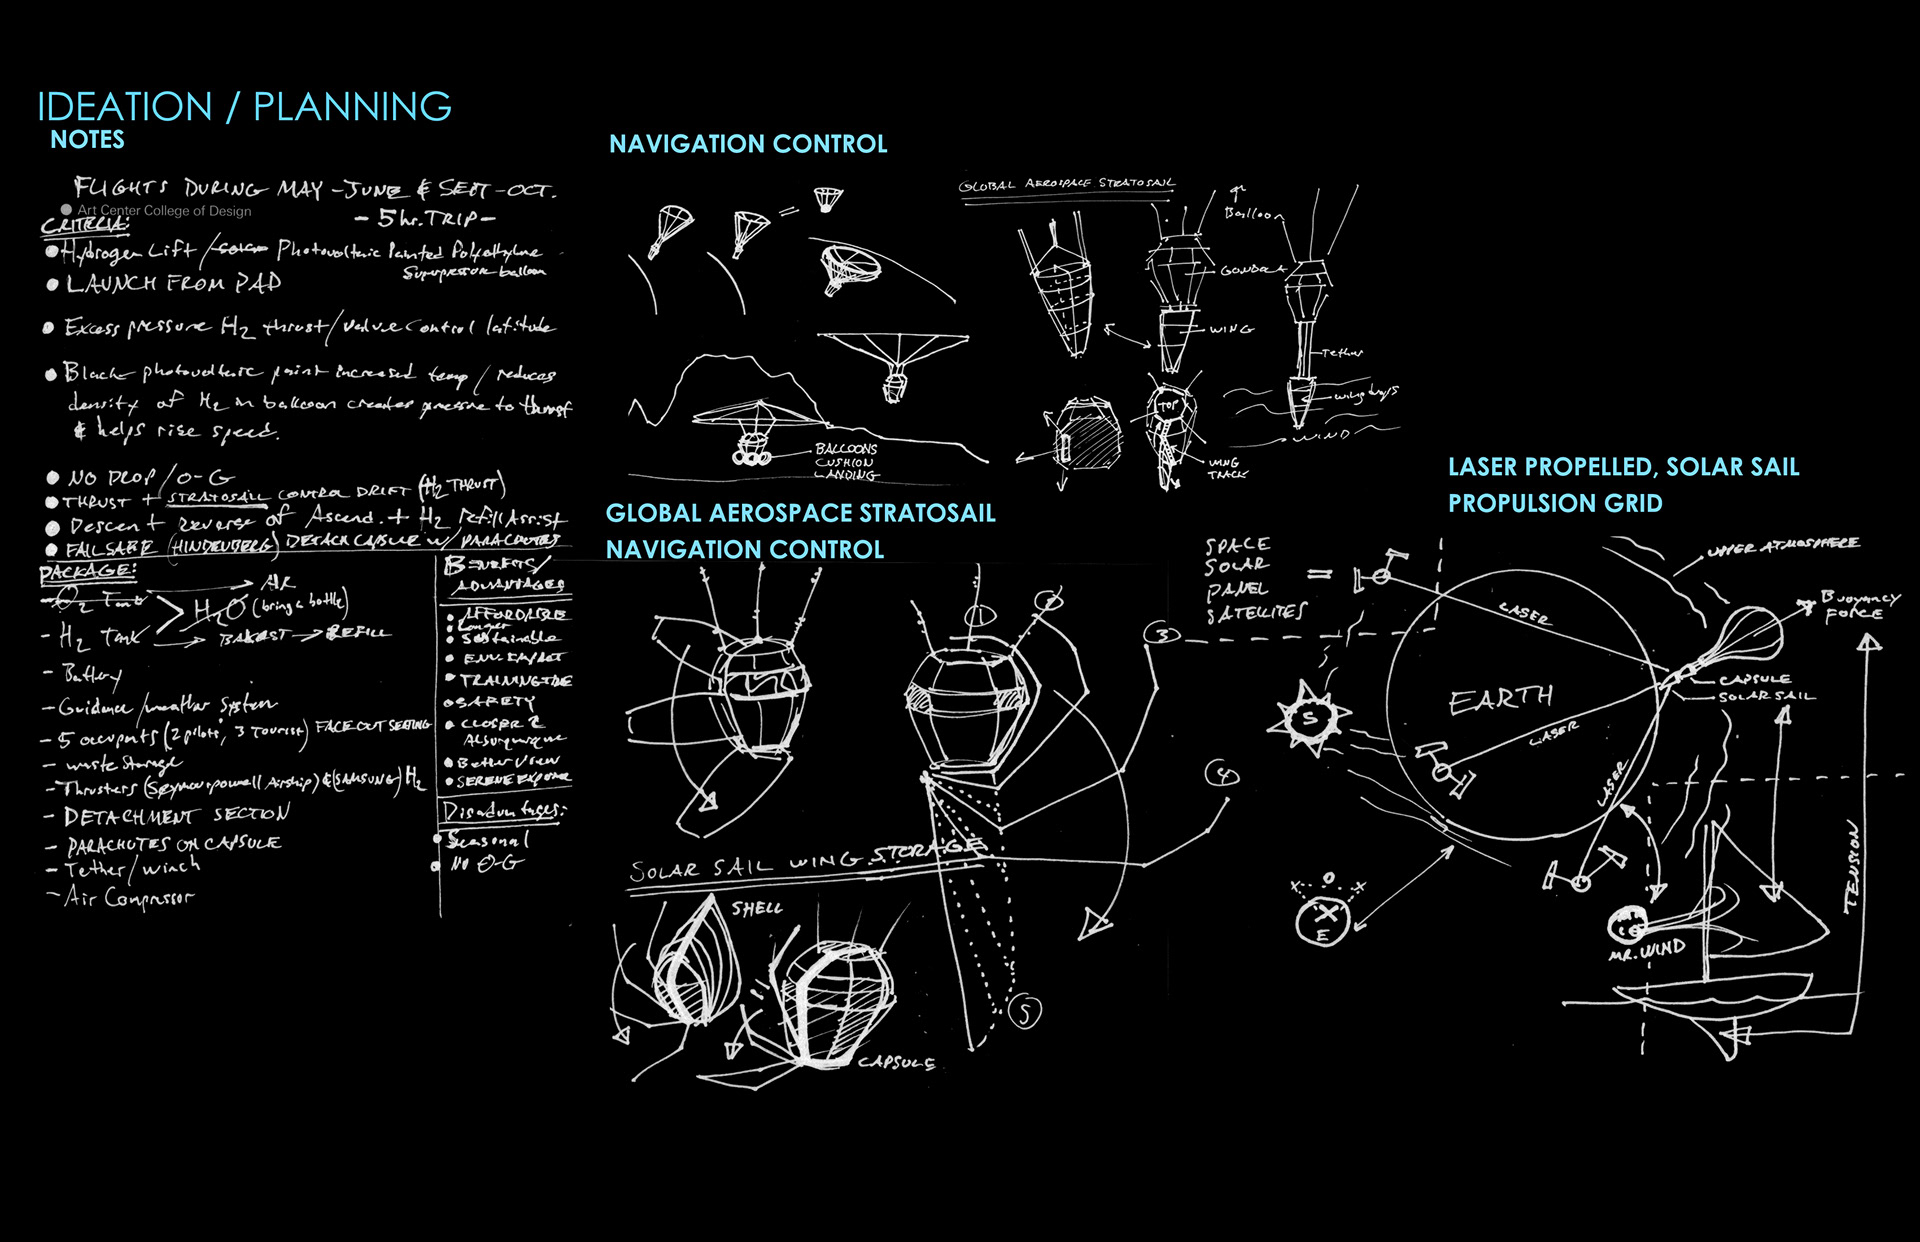 IDEATION / PLANNING
NOTES
FLIGHTS DURING MAY - JUNE & SEPT - OCT.
Art Center College of Design
- 5 hr. TRIP -
CRITERIA:
Hydrogen Lift / Photovoltaic Painted Polyethylene
balloon
LAUNCH FROM PAD
Excess pressure H2 thrust / valve control latitude
Black photovoltaic paint increased temp / reduces
density of H2 in balloon creates pressure to thrust
& helps rise speed.
NO DROP / 0-G
THRUST + STRATOSAIL CONTROL DRIFT (H2 THRUST)
Descent reverse of Ascend. + H2 Refill Assist
FAILSAFE (HINDENBERG) DETACH CAPSULE w/ PARACHUTES
PACKAGE:
O2 Tank
AIR
H2O (bring a bottle)
- H2 Tank
BALLAST → REFILL
- Battery
- Guidance / weather system
- 5 occupants (2 pilots, 3 Tourist) FACE OUT SEATING
- waste storage
- Thrusters (Seymourpowell Airship) & (SAMSUNG) H2
- DETACHMENT SECTION
- PARACHUTES ON CAPSULE
- Tether / winch
- Air Compressor
BENEFITS /
ADVANTAGES
AFFORDABLE
Longer
Sustainable
ENV. IMPACT
TRAINING
SAFETY
CLOSER
Albuquerque
Better View
SERENE
Disadvantages:
Seasonal
NO 0-G
NAVIGATION CONTROL
GLOBAL AEROSPACE STRATOSAIL
Balloon
GONDOLA
WING
Tether
WIND
TOP
WING
TRACK
BALLOONS
CUSHION
LANDING
GLOBAL AEROSPACE STRATOSAIL
NAVIGATION CONTROL
1
2
3
4
5
SOLAR SAIL WING STORAGE
SHELL
CAPSULE
LASER PROPELLED, SOLAR SAIL
PROPULSION GRID
SPACE
SOLAR
PANEL
SATELLITES
=
UPPER ATMOSPHERE
BUOYANCY
FORCE
LASER
CAPSULE
SOLAR SAIL
EARTH
S
LASER
LASER
TENSION
E
MR. WIND